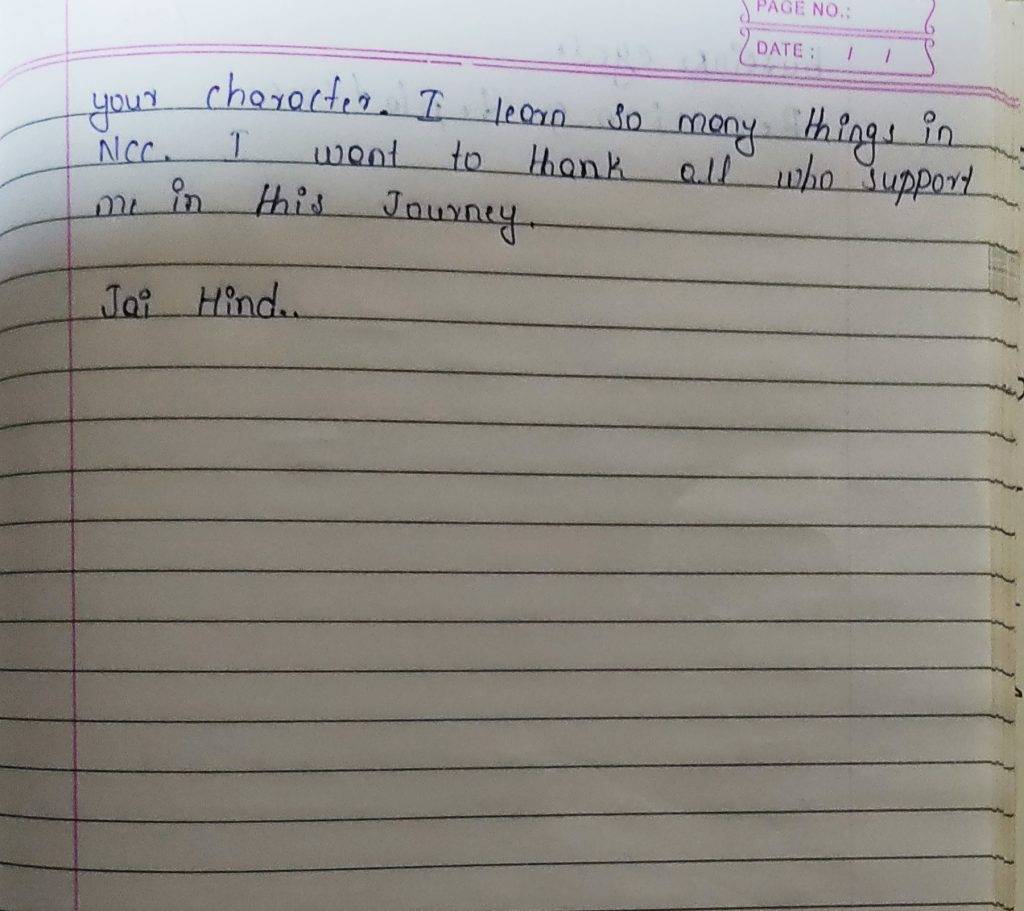 PAGE NO.:
DATE: / /
your character. I learn so many things in
NCC. I want to thank all who support
me in this Journey.
Jai Hind..